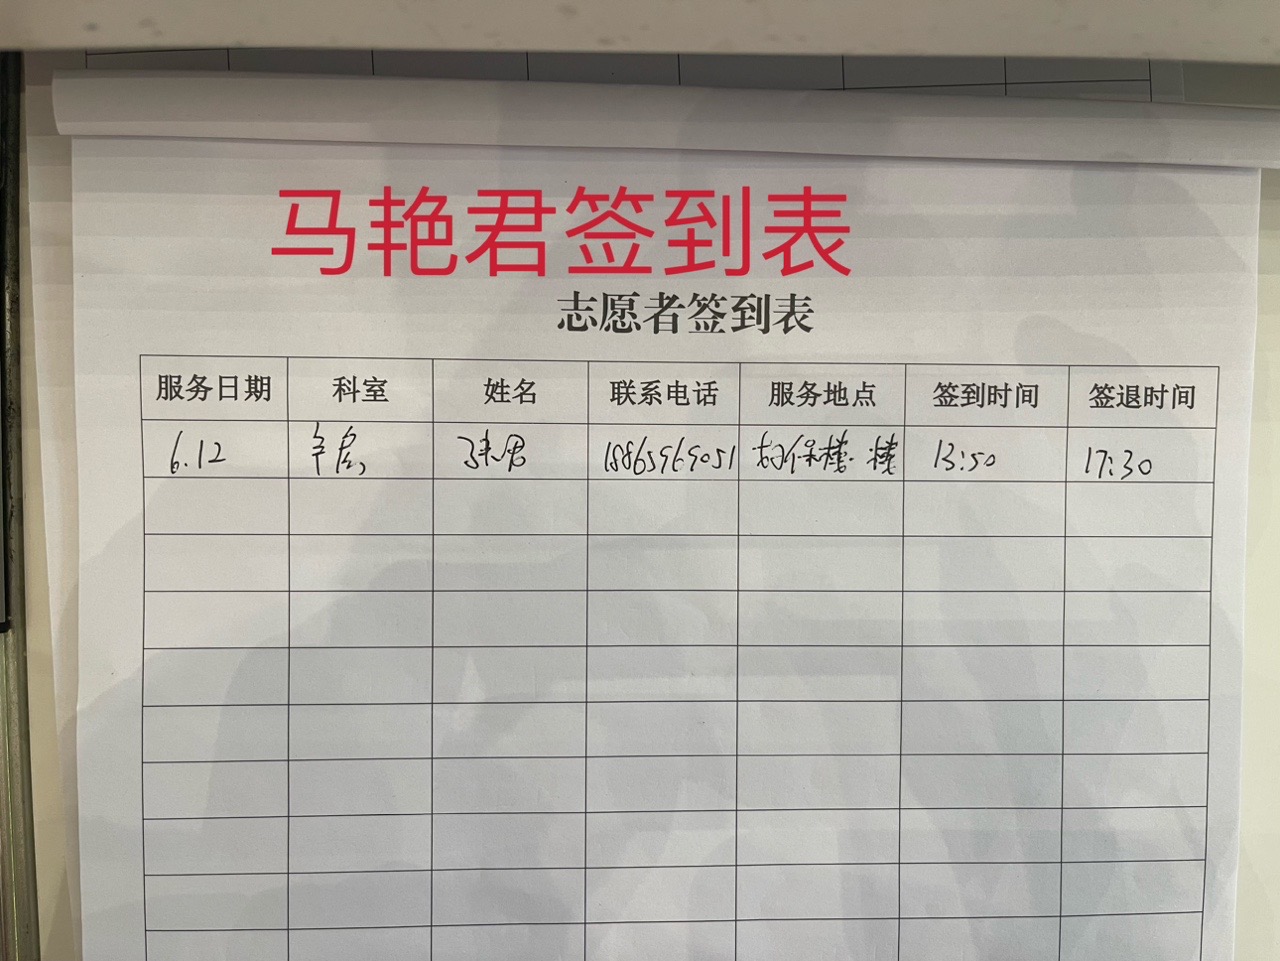 马艳君签到表
志愿者签到表
服务日期 科室 姓名 联系电话 服务地点 签到时间 签退时间
6.12 马艳君 18865969051 13:50 17:30